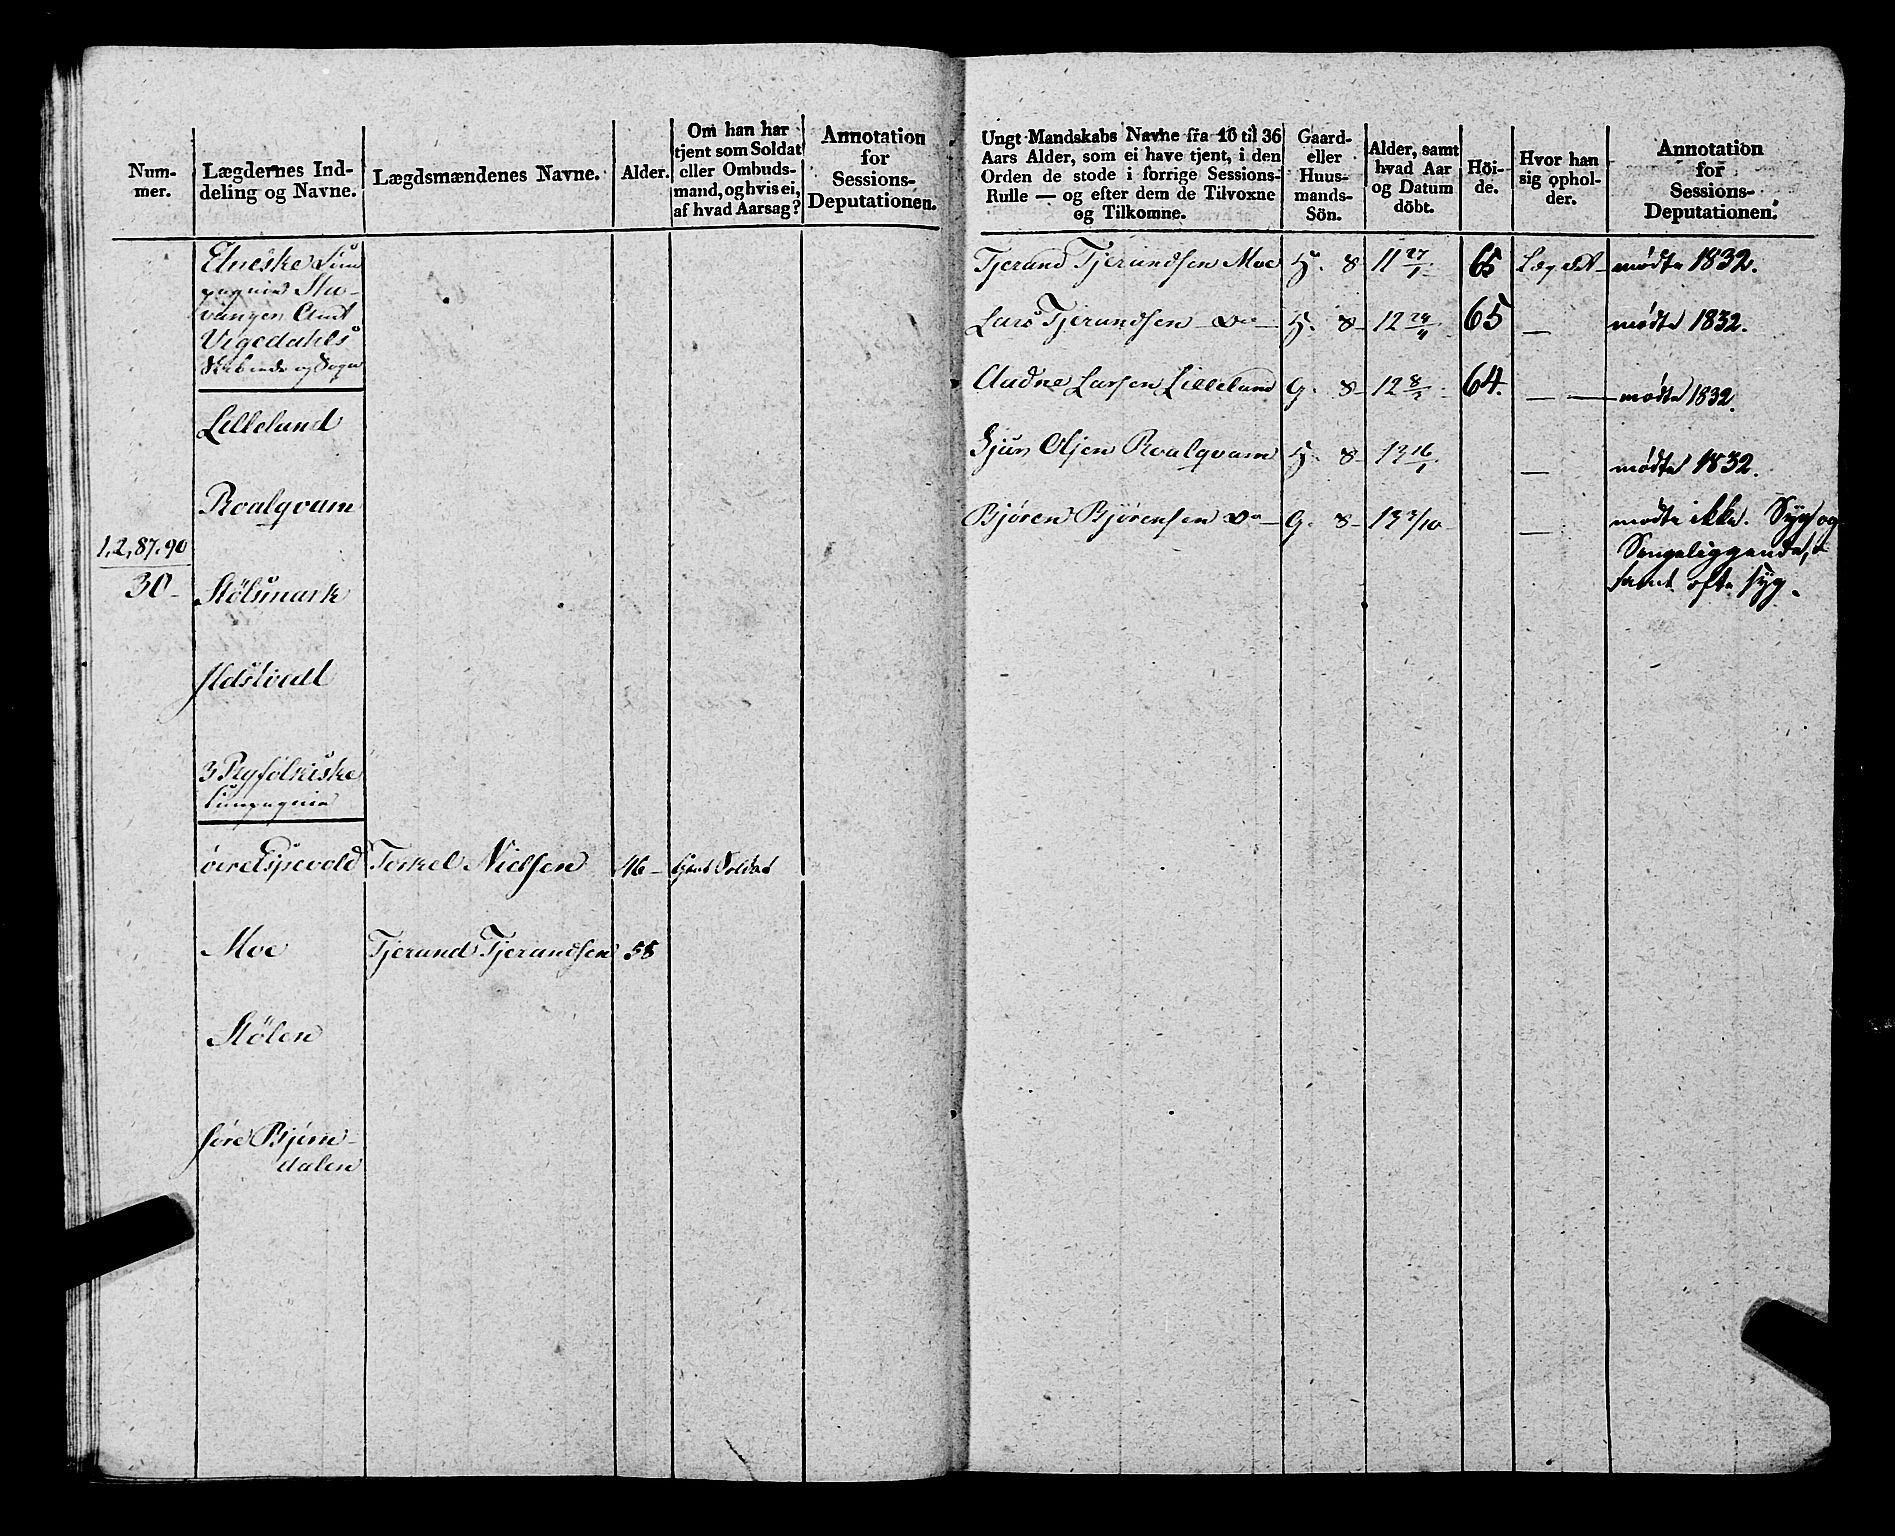 Num-
mer.
Lægdernes Ind-
deling og Navne.
Lægdsmændenes Navne.
Alder.
Om han har
tjent som Soldat
eller Ombuds-
mand, og hvis ei,
af hvad Aarsag?
Annotation
for
Sessions-
Deputationen.
Etneske Com
pagnie Sta-
vanger Amt
Vigedahls
Skibrede og Sogn
Lillelund
Roalqvam
1,2,87.90
30-
Stølsmark
Ilstvedt
3 Ryfølkiske
Compagnie
øvre Espevold Torkel Nielsen 46- Soldat
Moe Tjerand Tjerandsen 58
Stølen
søre Bjørn-
dalen
Ungt Mandskabs Navne fra 16 til 36
Aars Alder, som ei have tjent, i den
Orden de stode i forrige Sessions-
Rulle — og efter dem de Tilvoxne
og Tilkomne.
Gaard-
eller
Huus-
mands-
Sön.
Alder, samt
hvad Aar
og Datum
döbt.
Höi-
de.
Hvor han
sig ophol-
der.
Annotation
for
Sessions-
Deputationen.
Tjerand Tjerandsen Moe H. 8 11 27/1 65 Lægdet mødte 1832.
Lars Tjerandsen - do - H. 8- 12 24/4 65 — mødte 1832.
Audne Larsen Lillelund G. 8- 12 8/2 64. — mødte 1832.
Sjur Olsen Roalqvam H. 8- 13 16/1 — mødte 1832.
Bjøren Bjørensen do - G. 8- 13 3/10 — mødte ikke. Syg og
Sengeliggende,
samt ofte syg.